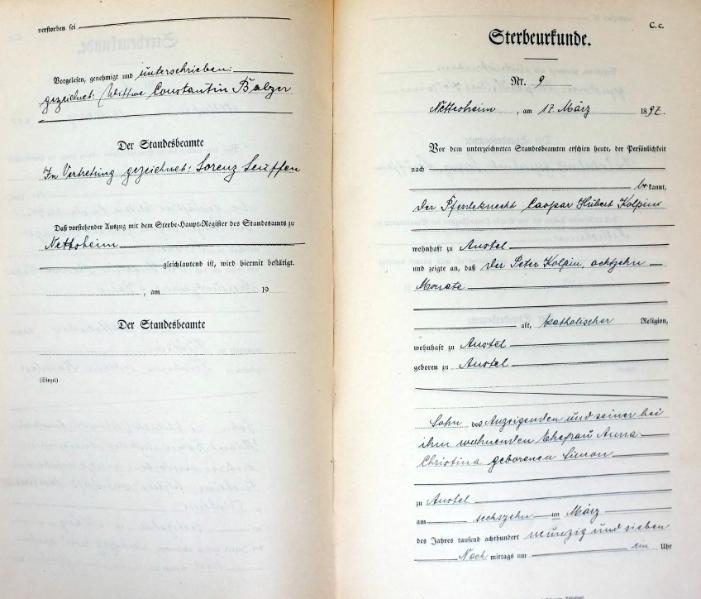 verstorben sei
Vorgelesen, genehmigt und unterschrieben:
gezeichnet: Wittwe Constantin Balzer
Der Standesbeamte
In Vertretung gezeichnet: Lorenz Leuffen
Daß vorstehender Auszug mit dem Sterbe-Haupt-Register des Standesamts zu
Nettesheim
gleichlautend ist, wird hiermit bestätigt.
, am 19
Der Standesbeamte
(Siegel)
C. c.
Sterbeurkunde.
Nr. 9
Nettesheim, am 17. März 1897.
Vor dem unterzeichneten Standesbeamten erschien heute, der Persönlichkeit
nach
be kannt,
der Pferdeknecht Caspar Hubert Kolpin
wohnhaft zu Anstel
und zeigte an, daß der Peter Kolpin, achtzehn
Monate
alt, katholischer Religion,
wohnhaft zu Anstel
geboren zu Anstel
Sohn des Anzeigenden und seiner bei
ihm wohnenden Ehefrau Anna
Christina geborenen Simon
zu Anstel
am sechszehn ten März
des Jahres tausend achthundert neunzig und sieben
Nach mittags um ein Uhr